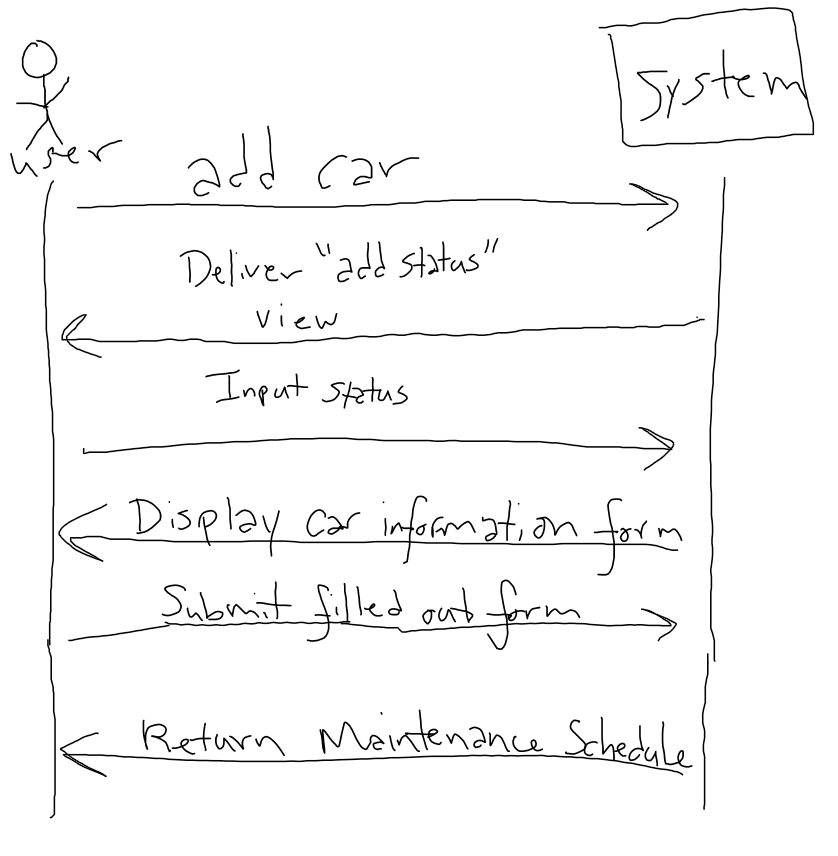 System
user
add car
Deliver "add status"
view
Input status
Display car information form
Submit filled out form
Return Maintenance Schedule